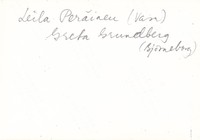 Leila Peräinen (Vasa)
Greta Grundberg
(Björneborg)